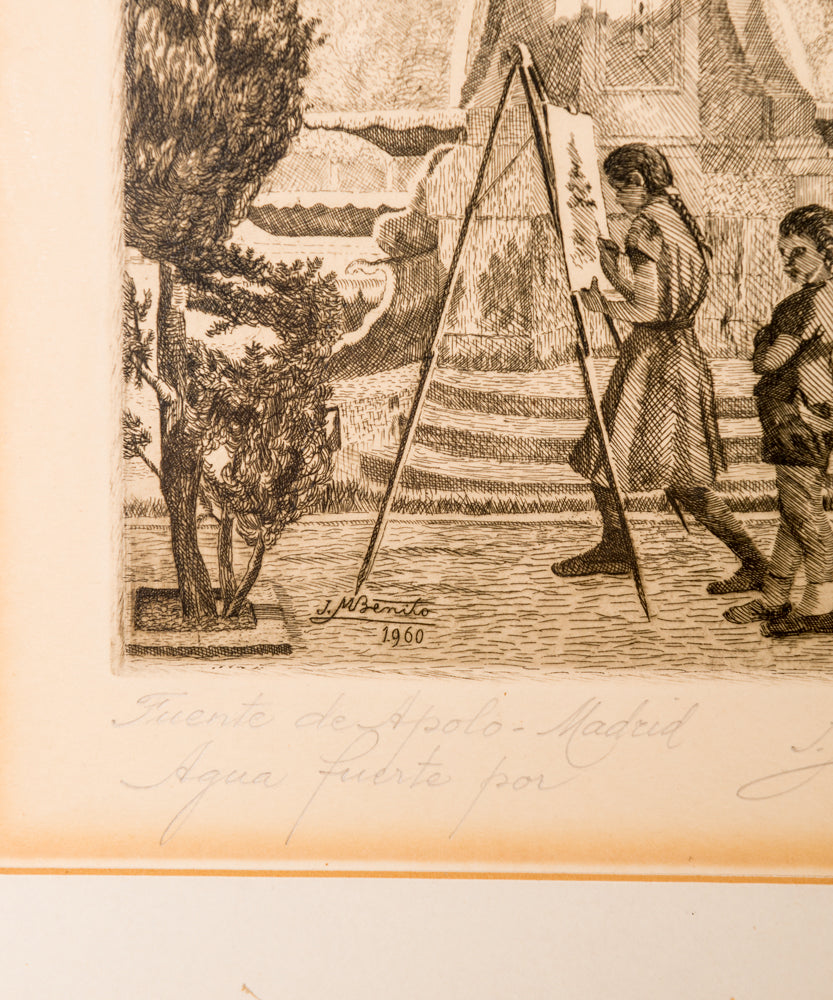 J. M Benito
1960
Fuente de Apolo - Madrid
Agua fuerte por
J.